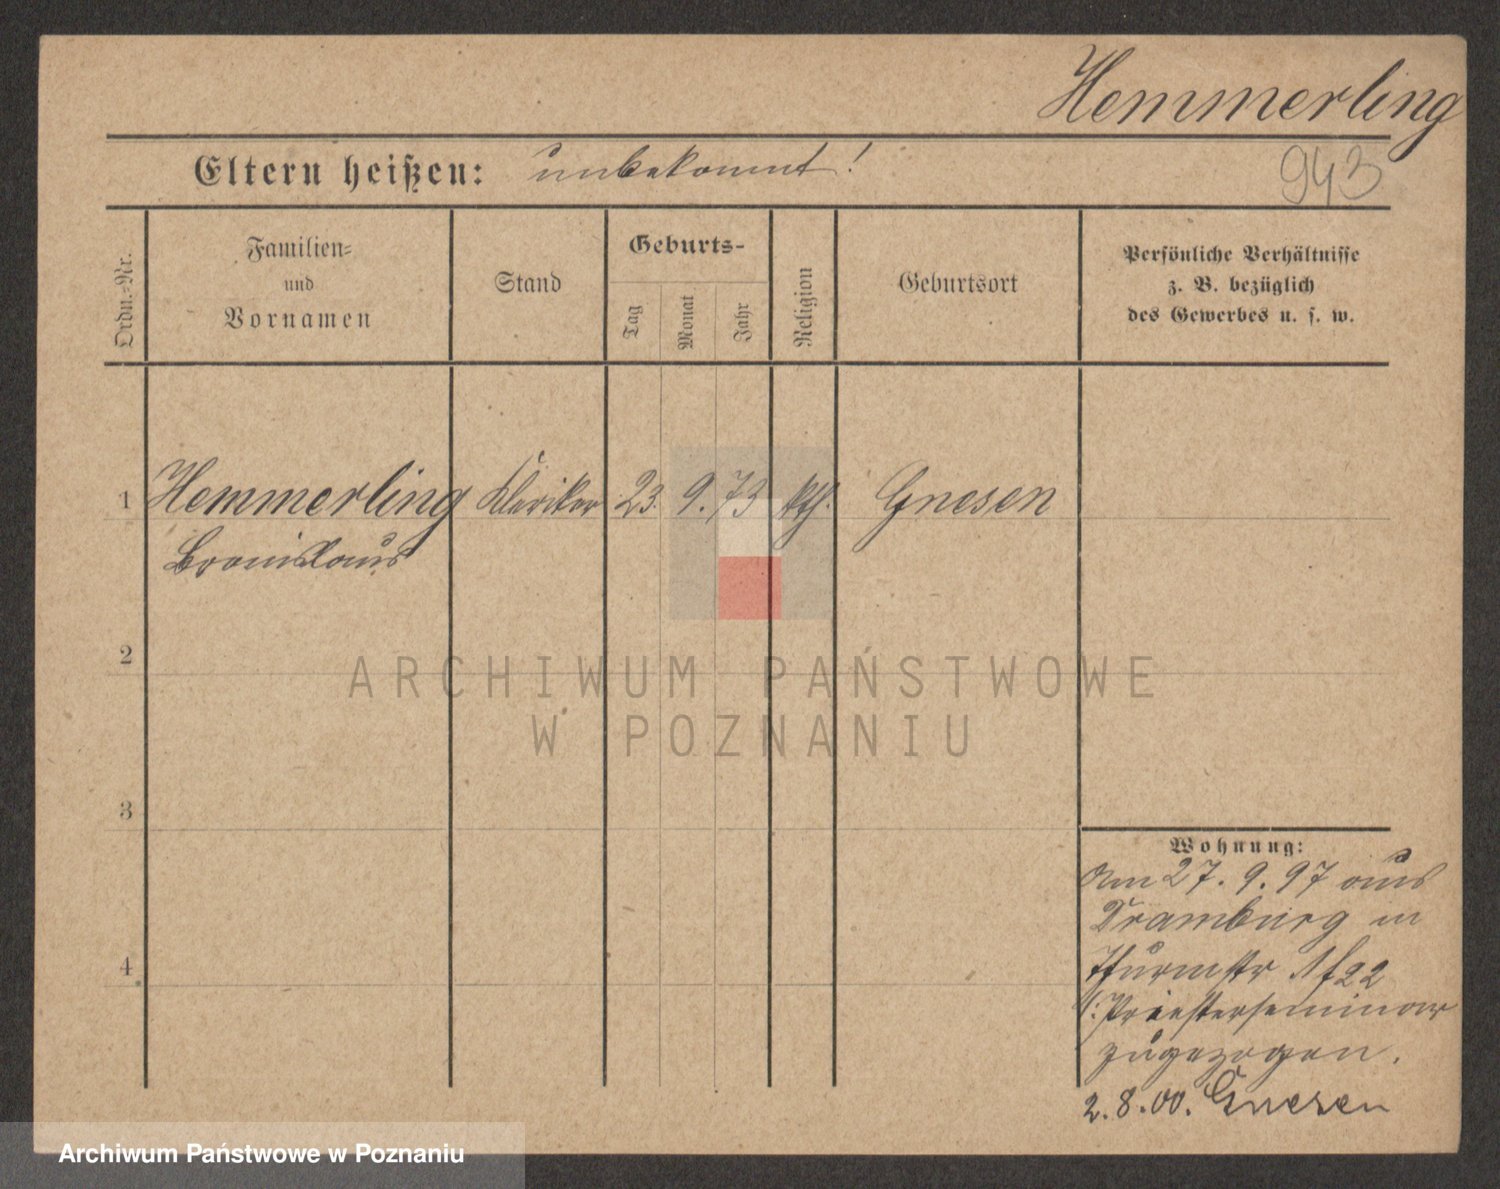 Hemmerling
Eltern heißen: unbekannt!
943
Ordn.-Nr.
Familien-
und
Vornamen
Stand
Geburts-
Tag
Monat
Jahr
Religion
Geburtsort
Persönliche Verhältnisse
z. B. bezüglich
des Gewerbes u. s. w.
1 Hemmerling Kleriker 23. 9. 73 kth. Gnesen
Bronislaus
2
ARCHIWUM PAŃSTWOWE
W POZNANIU
3
Wohnung:
Am 27. 9. 97 aus
Dramburg in
4
Thurmstr
Priesterseminar
zugezogen.
2. 8. 00. Gnesen
Archiwum Państwowe w Poznaniu